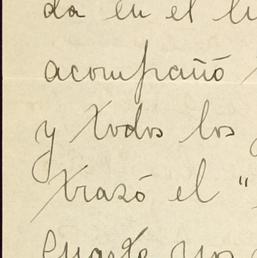 da en el
acompañó
y todos los
trazó el "